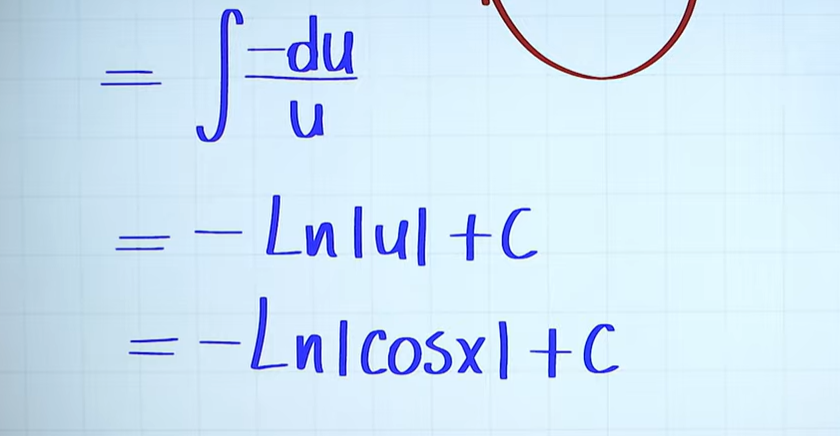 = ∫ -du/u
= - Ln|u| + C
= -Ln|cosx| + C